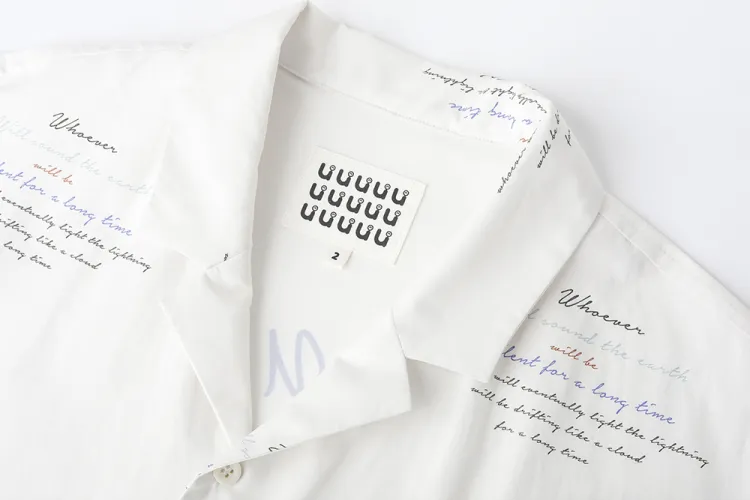 Whoever
around the earth
will be
lent for a long time
eventually light the lightning
drifting like a cloud
long time
2
a long time
whoever
will be
Whoever
around the earth
will be
lent for a long time
will eventually light the lightning
will be drifting like a cloud
for a long time